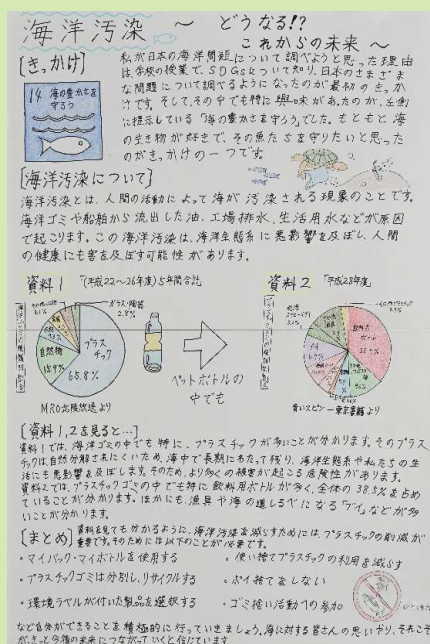 海洋汚染 ～ どうなる!?
これからの未来 ～
[きっかけ]
私が日本の海洋問題について調べようと思った理由
は、学校の授業で、SDGsについて知り、日本のさまざま
な問題について調べるようになったのが最初のきっか
けです。そして、その中でも特に興味があったのが、左側
に提示している「海の豊かさを守ろう」でした。もともと海
の生き物が好きで、その魚たちを守りたいと思った
のがきっかけの一つです。
14 海の豊かさを
守ろう
[海洋汚染について]
海洋汚染とは、人間の活動によって海が汚染される現象のことです。
海洋ゴミや船舶から流出した油、工場排水、生活用水などが原因
で起こります。この海洋汚染は、海洋生態系に悪影響を及ぼし、人間
の健康にも害を及ぼす可能性があります。
資料1 (平成22～26年度)5年間合計
ガラス・陶器
2.8%
プラス
チック
65.8%
自然物
15.9%
MRO北陸放送より
ペットボトルの
中でも
資料2 「平成28年度」
飲料用
ボトル
38.5%
青いスピン―東京書籍より
[資料1,2を見ると…]
資料1では、海洋ゴミの中でも特に、プラスチックが多いことが分かります。そのプラス
チックは自然分解されにくいため、海中で長期にわたって残り、海洋生態系や私たちの生
活にも悪影響を及ぼします。そのため、より多くの被害が起こる危険性があります。
資料2では、プラスチックゴミの中でも特に飲料用ボトルが多く、全体の38.5%を占め
ていることが分かります。ほかにも、漁具や海の道しるべになる「ブイ」などが多
いことが分かります。
[まとめ] 資料を見ても分かるように、海洋汚染を減らすためには、プラスチックの削減が
重要です。そのためには以下のことが必要です。
・マイバック・マイボトルを使用する
・使い捨てプラスチックの利用を減らす
・プラスチックゴミは分別し、リサイクルする
・ポイ捨てをしない
・環境ラベルが付いた製品を選択する
・ゴミ拾い活動への参加
など自分ができることを積極的に行っていきましょう。海に対する皆さんの思いやり、それこそ
がきっと今後の未来につながっていくと信じています